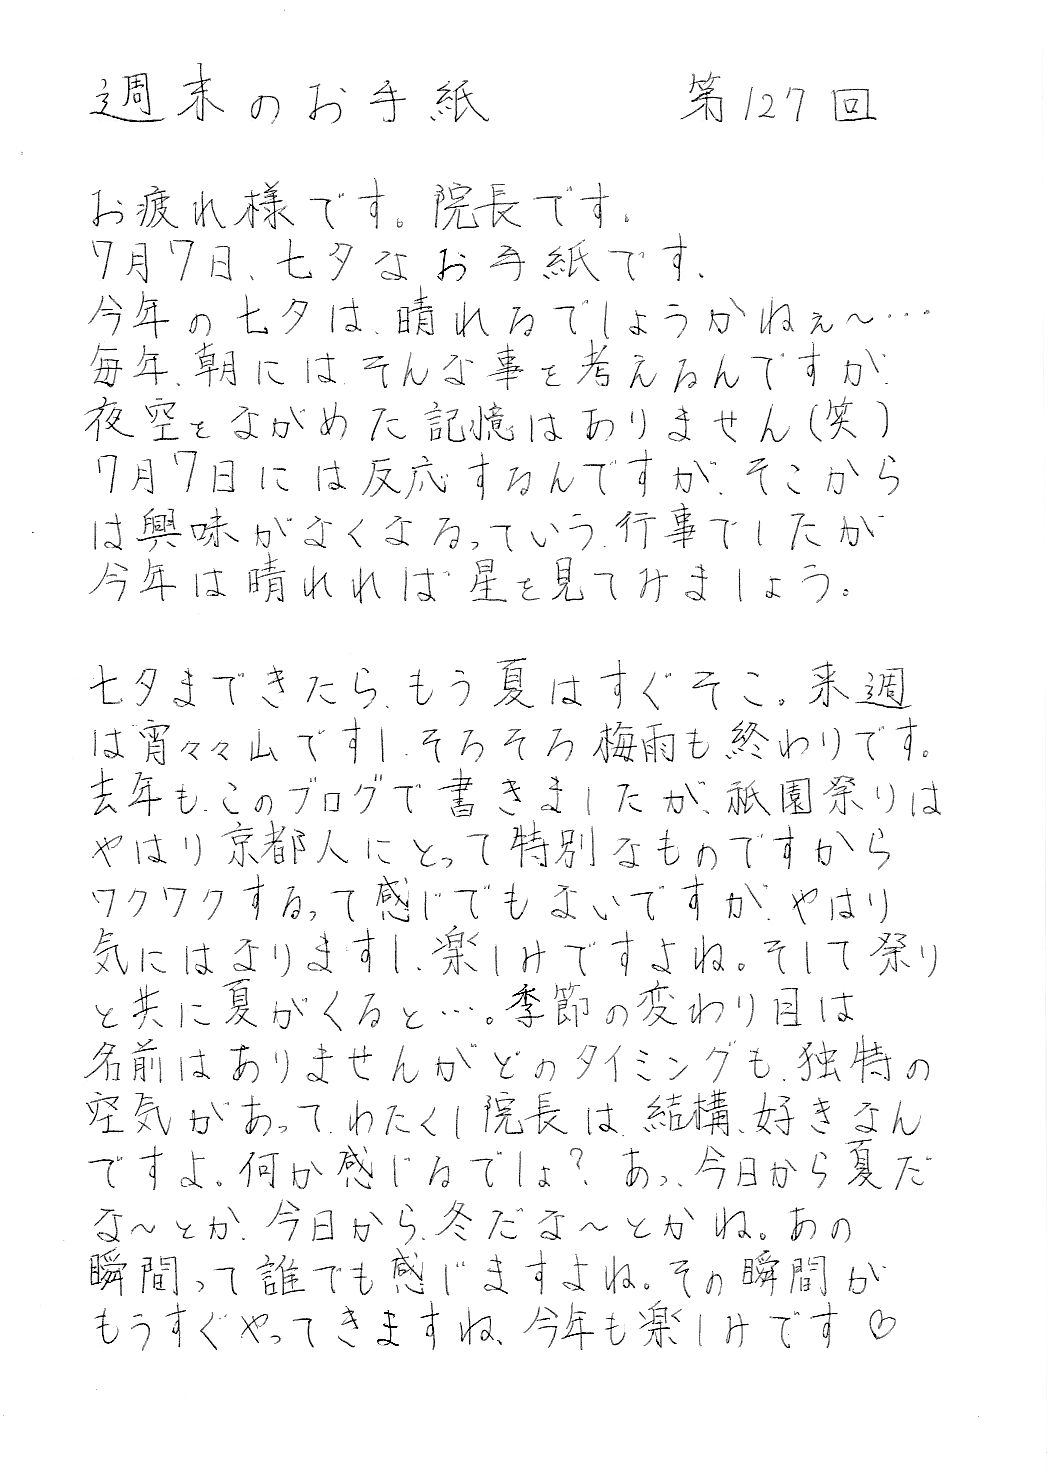 週末のお手紙 第127回
お疲れ様です。院長です。
7月7日、七夕なお手紙です。
今年の七夕は、晴れるでしょうかねぇ〜…
毎年、朝にはそんな事を考えるんですが、
夜空をながめた記憶はありません(笑)
7月7日には反応するんですが、そこから
は興味がなくなるっていう、行事でしたが
今年は晴れれば星を見てみましょう。
七夕まできたら、もう夏はすぐそこ。来週
は宵々々山ですし、そろそろ梅雨も終わりです。
去年も、このブログで書きましたが、祇園祭りは
やはり京都人にとって特別なものですから
ワクワクするって感じでもないですが、やはり
気にはなりますし、楽しみですよね。そして祭り
と共に夏がくると…。季節の変わり目は
名前はありませんがどのタイミングも、独特の
空気があって、わたくし院長は、結構、好きなん
ですよ。何か感じるでしょ?あっ、今日から夏だ
な〜とか、今日から、冬だな〜とかね。あの
瞬間って誰でも感じますよね。その瞬間が
もうすぐやってきますね、今年も楽しみです♡